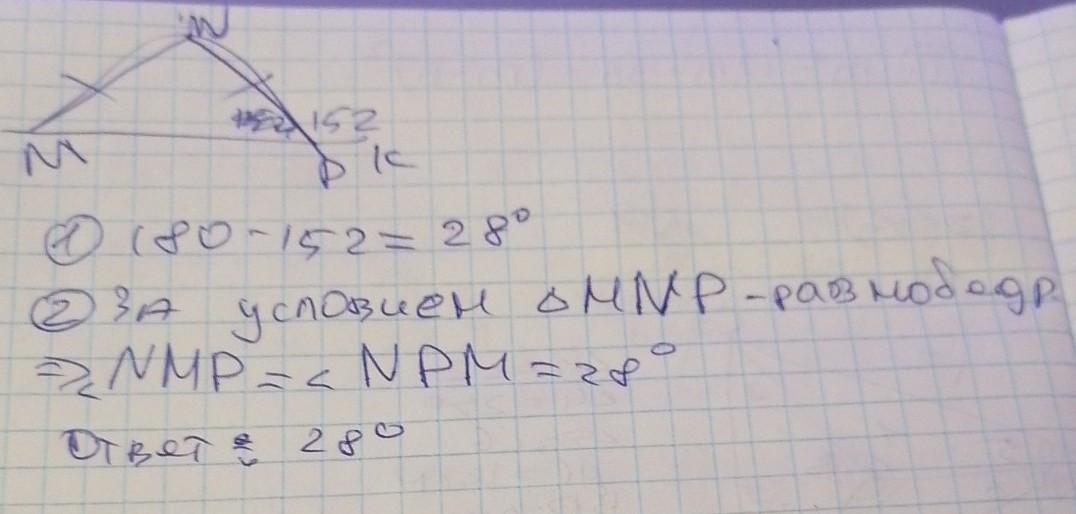 N
152
M
P K
① 180-152= 28°
② ЗА условием △MNP-равнобедр
=>∠NMP=<NPM=28°
Ответ: 28°